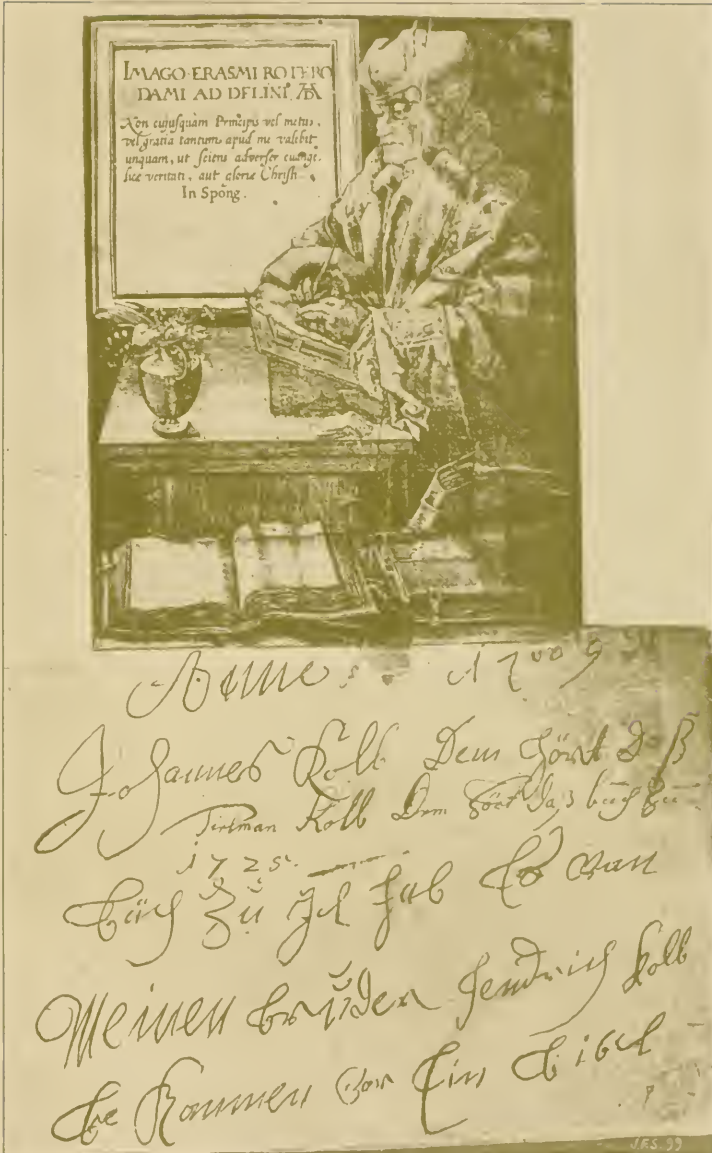 IMAGO ERASMI ROTERO
DAMI AD DELINI. AD
Non cujusquam Principis vel metus,
vel gratia tantum apud me valebit
unquam, ut sciens adverser euange.
licæ veritati, aut gloriæ Christi.
In Spong.
Anno 1709
Johannes Kolb Dem hört d ß
Tielman Kolb Dem hört daß buch zu
1725
buch zu ich hab Es van
Meinen bruder Hendrich Kolb
be Kommen vor Ein bibel
J.F.S. 99